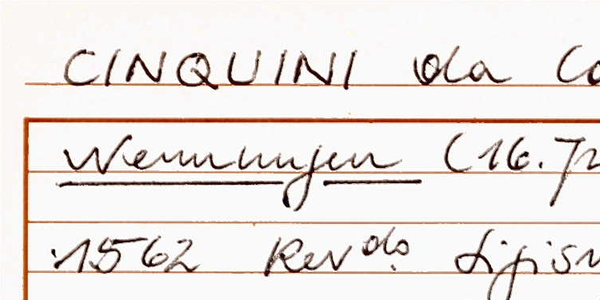 CINQUINI da Co
Wenningen (16. Jh
1562 Rev.do Sigism